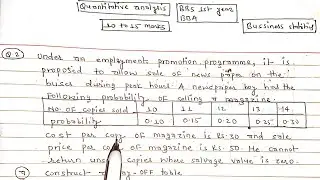 Quantitative analysis
BBS 1st year
BBA
10 to 15 marks
Bussiness statistics
Q.2 Under an employment promotion programme, it is
proposed to allow sale of news paper on the
buses during peak hours. A newspaper boy had the
following probability of selling a magazine.
No. of copies sold 10 11 12 13 14
probability 0.10 0.15 0.20 0.25 0.30
cost per copy of magazine is Rs.30 and sale
price per copy of magazine is Rs.50. He cannot
return unsold copies whose salvage value is zero.
construct pay-off table